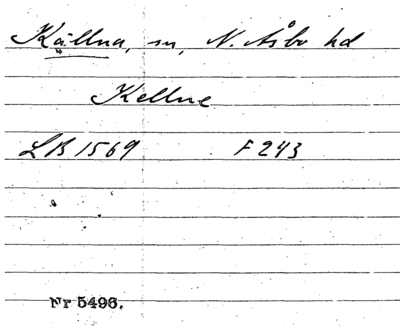 Källna, sn, N. Åsbo hd
Kellne
LB 1569 F 243
Nr 5496.